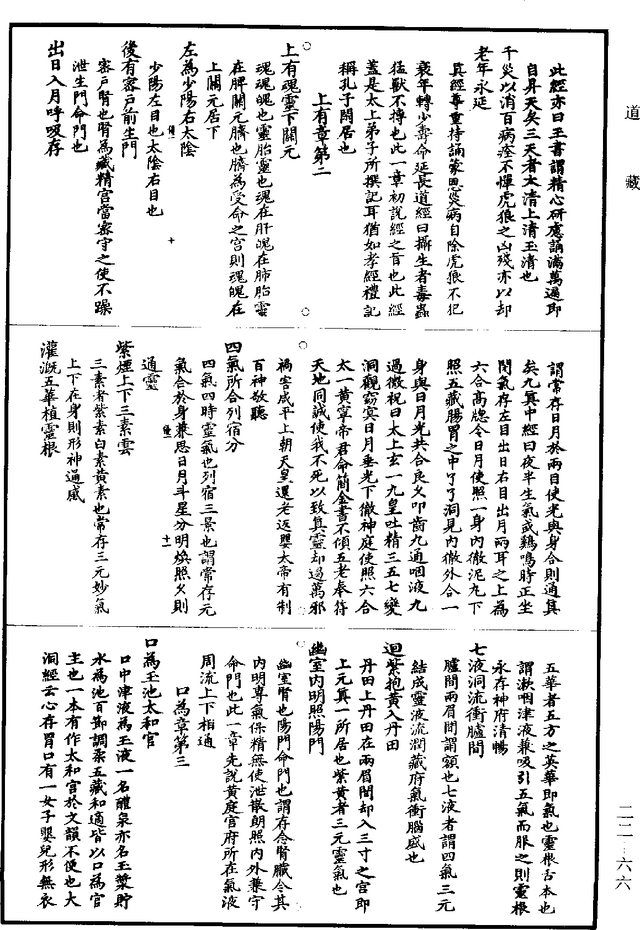 道藏
此經亦曰玉書謂精心研慮誦滿萬遍即
自昇天矣三天者太清上清玉清也
千災以消百病痊不憚虎狼之凶殘亦以却
老年永延
其經尊重持誦蒙恩災病自除虎狼不犯
衰年轉少壽命延長道經曰攝生者毒蟲
猛獸不搏也此一章初說經之旨也此經
蓋是太上弟子所撰記耳猶如孝經禮記
稱孔子閒居也
上有章第二
上有魂靈下關元
魂魂魄也靈胎靈也魂在肝魄在肺胎靈
在脾關元臍也臍為受命之宮則魂魄在
上關元居下
左為少陽右太陰
少陽左目也太陰右目也
後有密戶前生門
密戶腎也腎為藏精宮當密守之使不躁
泄生門命門也
出日入月呼吸存
謂常存日月於兩目使光與身合則通真
矣九真中經曰夜半生氣或雞鳴時正坐
閉氣存左目出日右目出月兩耳之上為
六合高牕令日月使照一身內徹泥九下
照五藏腸胃之中了了洞見內徹外合一
身與日月光共合良久叩齒九通咽液九
過微祝曰太上玄一九皇吐精三五七變
洞觀窈冥日月垂光下徹神庭使照六合
太一黃寧帝君命簡金書不傾五老奉符
天地同誠使我不死以致真靈却過萬邪
禍害咸平上朝天皇還老返嬰太帝有制
百神敬聽
四氣所合列宿分
四氣四時靈氣也列宿三景也謂常存元
氣合於身兼思日月斗星分明煥照久則
通靈
紫煙上下三素雲
三素者紫素白素黃素也常存三元妙氣
上下在身則形神通感
灌溉五華植靈根
五華者五方之英華即氣也靈根舌本也
謂漱咽津液兼吸引五氣而服之則靈根
永存神府清暢
七液洞流衝臚間
臚間兩眉間謂額也七液者謂四氣三元
結成靈液流潤藏府氣衝腦感也
迴紫抱黃入丹田
丹田上丹田在兩眉間却入三寸之宮即
上元真一所居也紫黃者三元靈氣也
幽室內明照陽門
幽室腎也陽門命門也謂存念腎臟令其
內明專氣保精無使泄散朗照內外兼守
命門也此一章先說黃庭宮府所在氣液
周流上下相通
口為章第三
口為玉池太和官
口中津液為玉液一名醴泉亦名玉漿貯
水為池百節調柔五藏和適皆以口為官
主也一本有作太和宮於文韻不便也大
洞經云心存胃口有一女子嬰兒形無衣
二二-六六